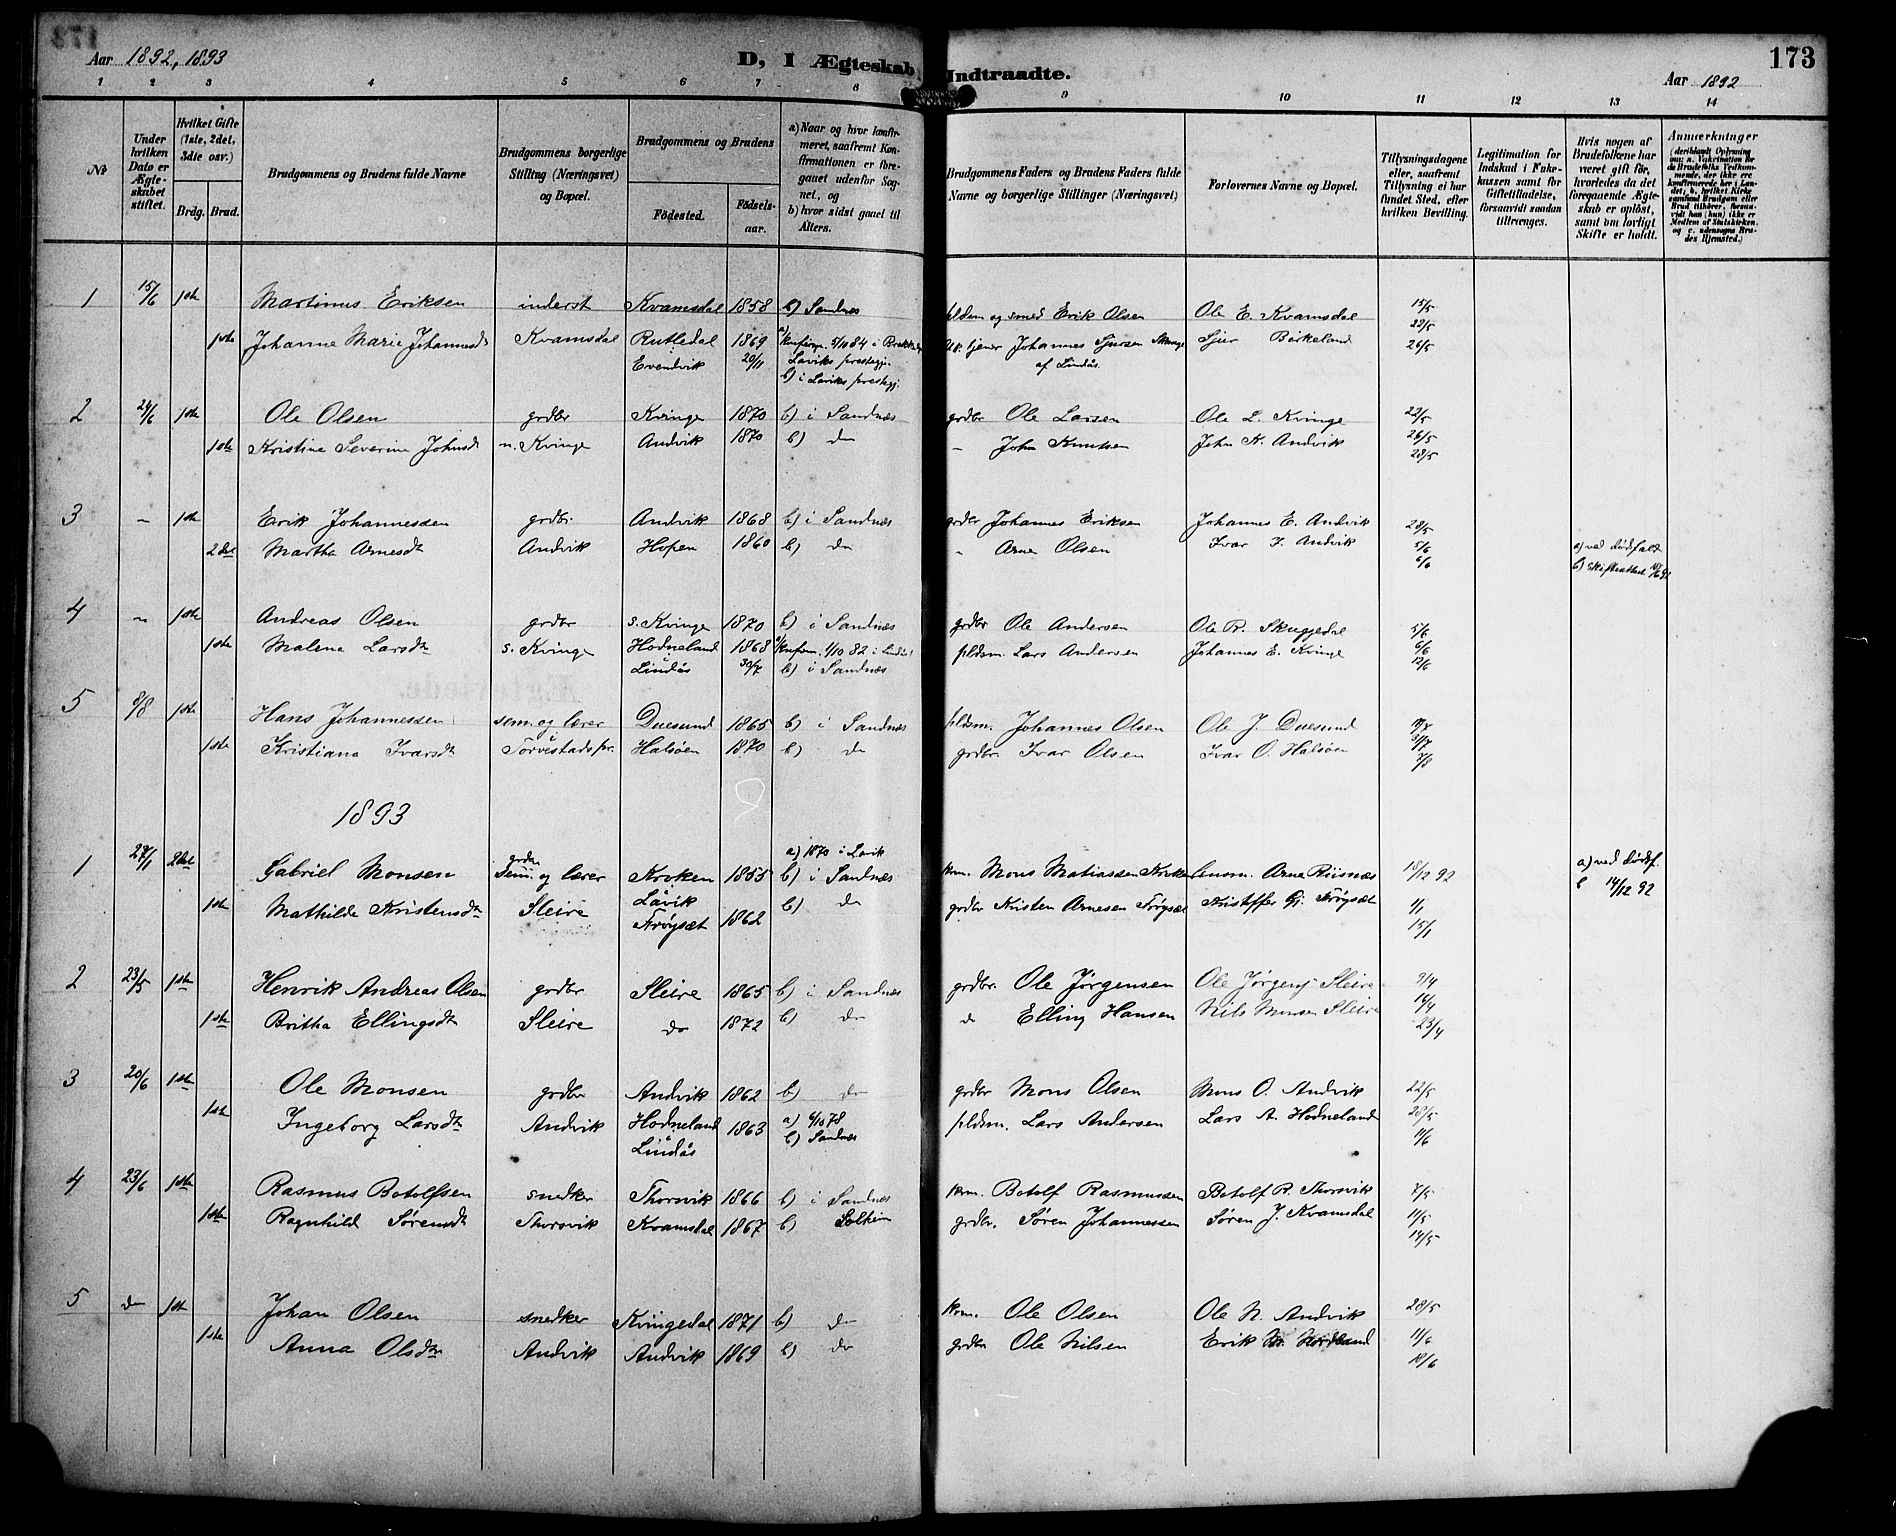 Aar 1892, 1893
D, I Ægteskab Indtraadte.
173
Aar 1892
1 2 3 4 5 6 7 8 9 10 11 12 13 14
No
Under hvilken Dato er Ægteskabet stiftet.
Hvilket Gifte (1ste, 2det, 3die osv.)
Brdg. Brud.
Brudgommens og Brudens fulde Navne
Brudgommens borgerlige Stilling (Næringsvei) og Bopæl.
Brudgommens og Brudens
Födested. Födselsaar.
a) Naar og hvor konfirmeret, saafremt Konfirmationen er foregaaet udenfor Sognet, og
b) hvor sidst gaaet til Alters.
Brudgommens Faders og Brudens Faders fulde Navne og borgerlige Stillinger (Næringsvei)
Forlovernes Navne og Bopæl.
Tillysningsdagene eller, saafremt Tillysning ei har fundet Sted, efter hvilken Bevilling.
Legitimation for Indskud i Enkekassen samt for Giftetilladelse, forsaavidt saadan tiltrænges.
Hvis nogen af Brudefolkene har været gift för, hvorledes da det foregaaende Ægteskab er oplöst, samt om lovligt Skifte er holdt.
Anmærkninger (deriblandt Oplysning om: a. Vakcination for de Brudefolks Vedkommende, der ikke ere konfirmerede her i Landet, b. hvilket Kirkesamfund Brudgom eller Brud tilhører, forsaavidt han (hun) ikke er Medlem af Statskirken, og c. udensogns Brudes Hjemsted.)
1 15/6 1ste Martinus Eriksen inderst Kvamsdal 1858 b) Sandnes pldsm og smed Erik Olsen Ole E. Kvamsdal 15/5
1ste Johanne Marie Johannesdt Kvamsdal Rutledal 1869 a) Konfirm. 5/10 84 i Brekke Johannes Sjursen Sjur Birkeland 22/5
Evendvik 20/11 Laviks prestegj. af Lindås. 26/5
b) i Laviks prestegj.
2 24/6 1ste Ole Olsen grdbr Kvinge 1870 b) i Sandnæs grdbr Ole Larsen Ole L. Kvinge 22/5
1ste Kristine Severine Johnsdt n. Kvinge Andvik 1870 b) do – John Knutsen John K. Andvik 26/5
28/5
3 – 1ste Erik Johannessen grdbr. Andvik 1868 b) i Sandnæs grdbr Johannes Eriksen Johannes E. Andvik 28/5
2det Martha Arnesdt Andvik Hopen 1860 b) do " Arne Olsen Ivar I. Andvik 5/6 a) ved dødsfald
6/6 b) skifteattest
4 – 1ste Andreas Olsen grdbr s. Kvinge 1870 b) i Sandnæs grdbr Ole Andersen Ole R. Skuggedal 5/6
1ste Malene Larsdt s. Kvinge Hodneland 1868 a) Konfirm. 1/10 82 i Lindås pldsm. Lars Andersen Johannes E. Kvinge 6/6
Lindås 30/7 b) i Sandnæs 12/6
5 8/8 1ste Hans Johannessen sem. og lærer Duesund 1865 b) i Sandnæs pldsm. Johannes Olsen Ole J. Duesund
1ste Kristiana Ivarsdt i Torvestads pr. Halsøen 1870 b) do grdbr. Ivar Olsen Ivar O. Halsøen 31/7
7/8
1893
1 27/1 2det Gabriel Monsen grdbr sem. og lærer Kroken 1855 a) 1870 i Lavik b) i Sandnæs krm. Mons Matiassen Kroken lensm. Arne Risnæs 18/12 92 a) ved dødsf.
1ste Mathilde Kristensdt Sleire Lavik Frøyset 1862 b) do grdbr Kristen Arnesen Frøyset Kristoffer Gj. Frøyset 1/1 b 14/12 92
15/1
2 23/5 1ste Henrik Andreas Olsen grdbr Sleire 1865 b) i Sandnæs grdbr. Ole Jørgensen Ole Jørgens Sleire 9/4
1ste Britha Ellingsdt Sleire do 1872 b) do d Elling Hansen Nils Monsen Sleire 16/4
23/4
3 20/6 1ste Ole Monsen grdbr Andvik 1862 b) do grdbr Mons Olsen Mons O. Andvik 22/5
1ste Ingeborg Larsdt Andvik Hodneland 1863 a) 6/10 78 pldsm. Lars Andersen Lars A. Hodneland 28/5
Lindås b) Sandnæs 11/6
4 23/6 1ste Rasmus Botolfsen snedker Thorsvik 1866 b) i Sandnæs krm. Botolf Rasmussen Botolf R. Thorsvik 7/5
1ste Ragnhild Sørensdt Thorsvik Kvamsdal 1867 b) Solheim grdbr. Søren Johannessen Søren J. Kvamsdal 11/5
14/5
5 do 1ste Johan Olsen snedker Kvingedal 1871 b) do krm. Ole Olsen Ole N. Andvik 28/5
1ste Anna Olsdtr Andvik Andvik 1869 b) do grdbr Ole Nilsen Erik Nordland 11/6
18/6